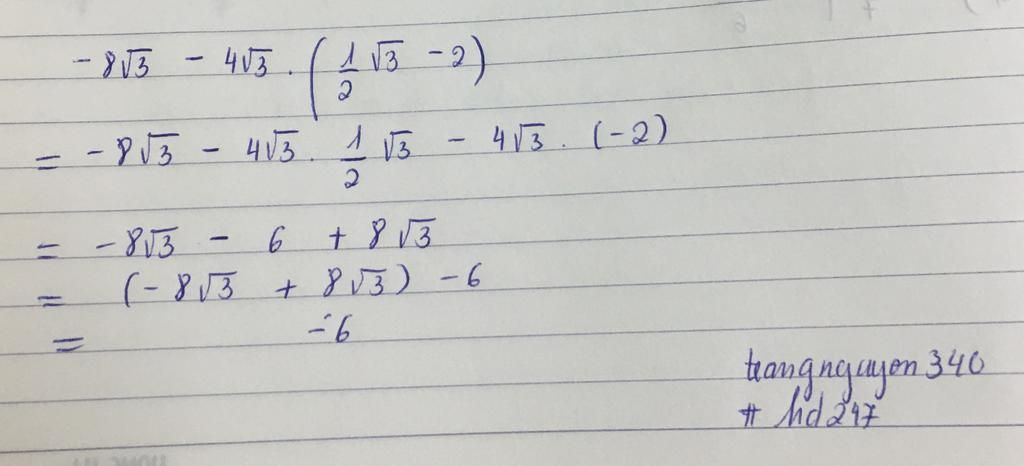 -8√3 - 4√3 . (1/2 √3 - 2)
= -8√3 - 4√3 . 1/2 √3 - 4√3 . (-2)
= -8√3 - 6 + 8√3
= (-8√3 + 8√3) - 6
= -6
trangnguyen340
# hd247